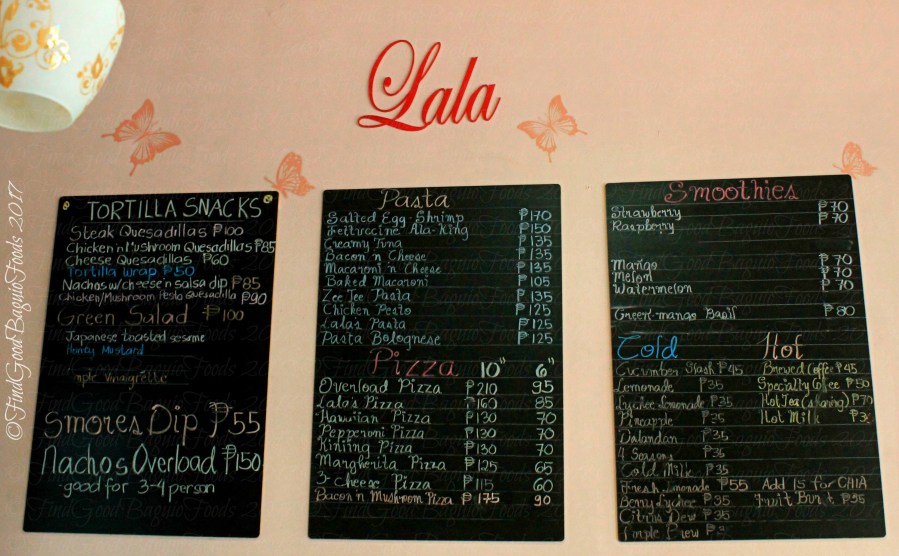 Lala
TORTILLA SNACKS
Steak Quesadillas ₱100
Chicken n Mushroom Quesadillas ₱85
Cheese Quesadillas ₱60
Tortilla Wrap ₱50
Nachos w/cheese n salsa dip ₱85
Chicken/Mushroom Pesto Quesadilla ₱90
Green Salad ₱100
Japanese toasted sesame
Honey Mustard
Vinaigrette
Smores Dip ₱55
Nachos Overload ₱150
-good for 3-4 person
Pasta
Salted Egg-Shrimp ₱170
Fettuccine Ala-King ₱150
Creamy Tuna ₱135
Bacon n Cheese ₱135
Macaroni n Cheese ₱135
Baked Macaroni ₱105
Zee Tee Pasta ₱135
Chicken Pesto ₱125
Lala's Pasta ₱125
Pasta Bolognese ₱125
Pizza 10" 6"
Overload Pizza ₱210 95
Lala's Pizza ₱160 85
Hawaiian Pizza ₱130 70
Pepperoni Pizza ₱130 70
Kiniing Pizza ₱130 70
Margherita Pizza ₱125 65
3-Cheese Pizza ₱115 60
Bacon n Mushroom Pizza ₱175 90
Smoothies
Strawberry ₱70
Raspberry ₱70
Mango ₱70
Melon ₱70
Watermelon ₱70
Green-mango Basil ₱80
Cold
Cucumber ₱45
Lemonade ₱35
Lychee Lemonade ₱35
Pineapple ₱35
Dalandan ₱35
4 Seasons ₱35
Cold Milk ₱35
Fresh Lemonade ₱55 Add 15 for CHIA
Berry Lychee ₱35 Fruit ₱95
Citrus Dew ₱35
Brew
Hot
Brewed Coffee ₱45
Specialty Coffee ₱50
Hot Tea (sharing) ₱70
Hot Milk
©FindGoodBaguioFoods 2017